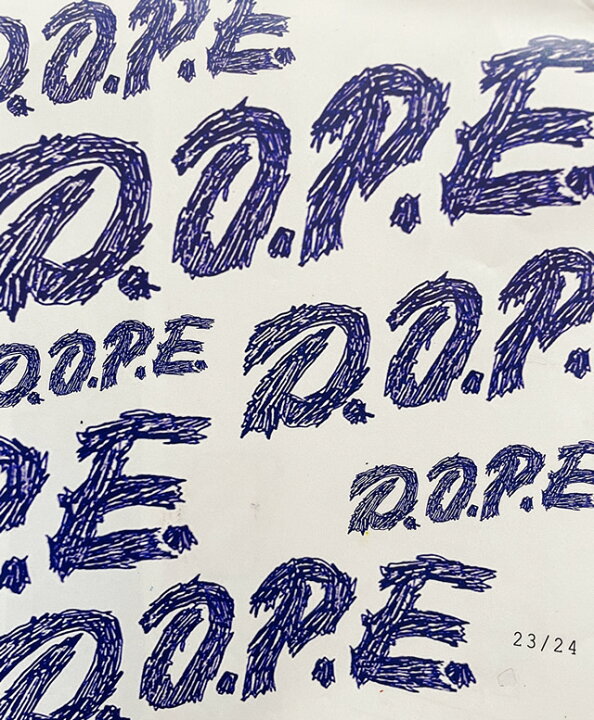 D.O.P.E.
D.O.P.E.
D.O.P.E.
D.O.P.
P.E.
D.O.P.E.
D.O.P.E.
23/24